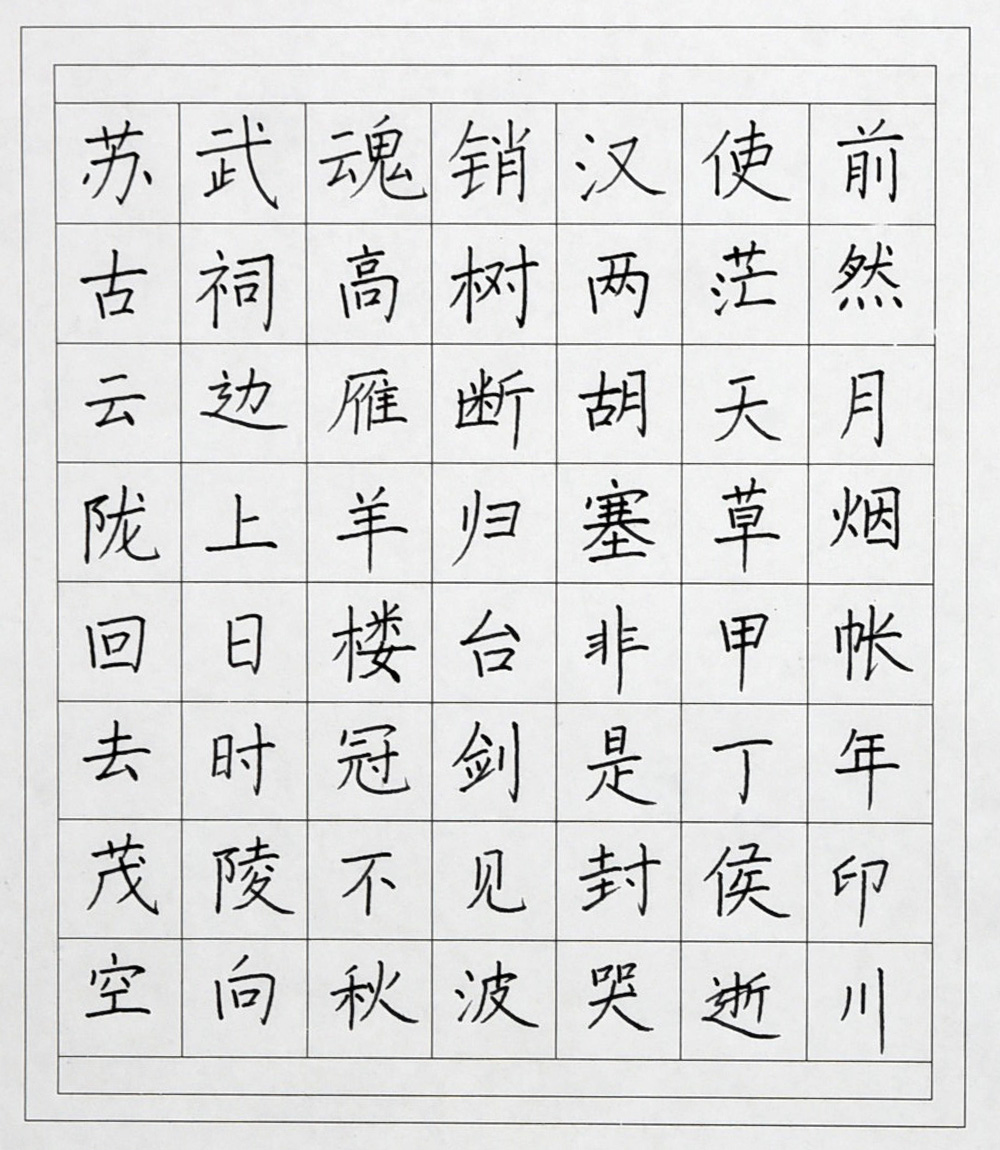 苏武魂销汉使前
古祠高树两茫然
云边雁断胡天月
陇上羊归塞草烟
回日楼台非甲帐
去时冠剑是丁年
茂陵不见封侯印
空向秋波哭逝川